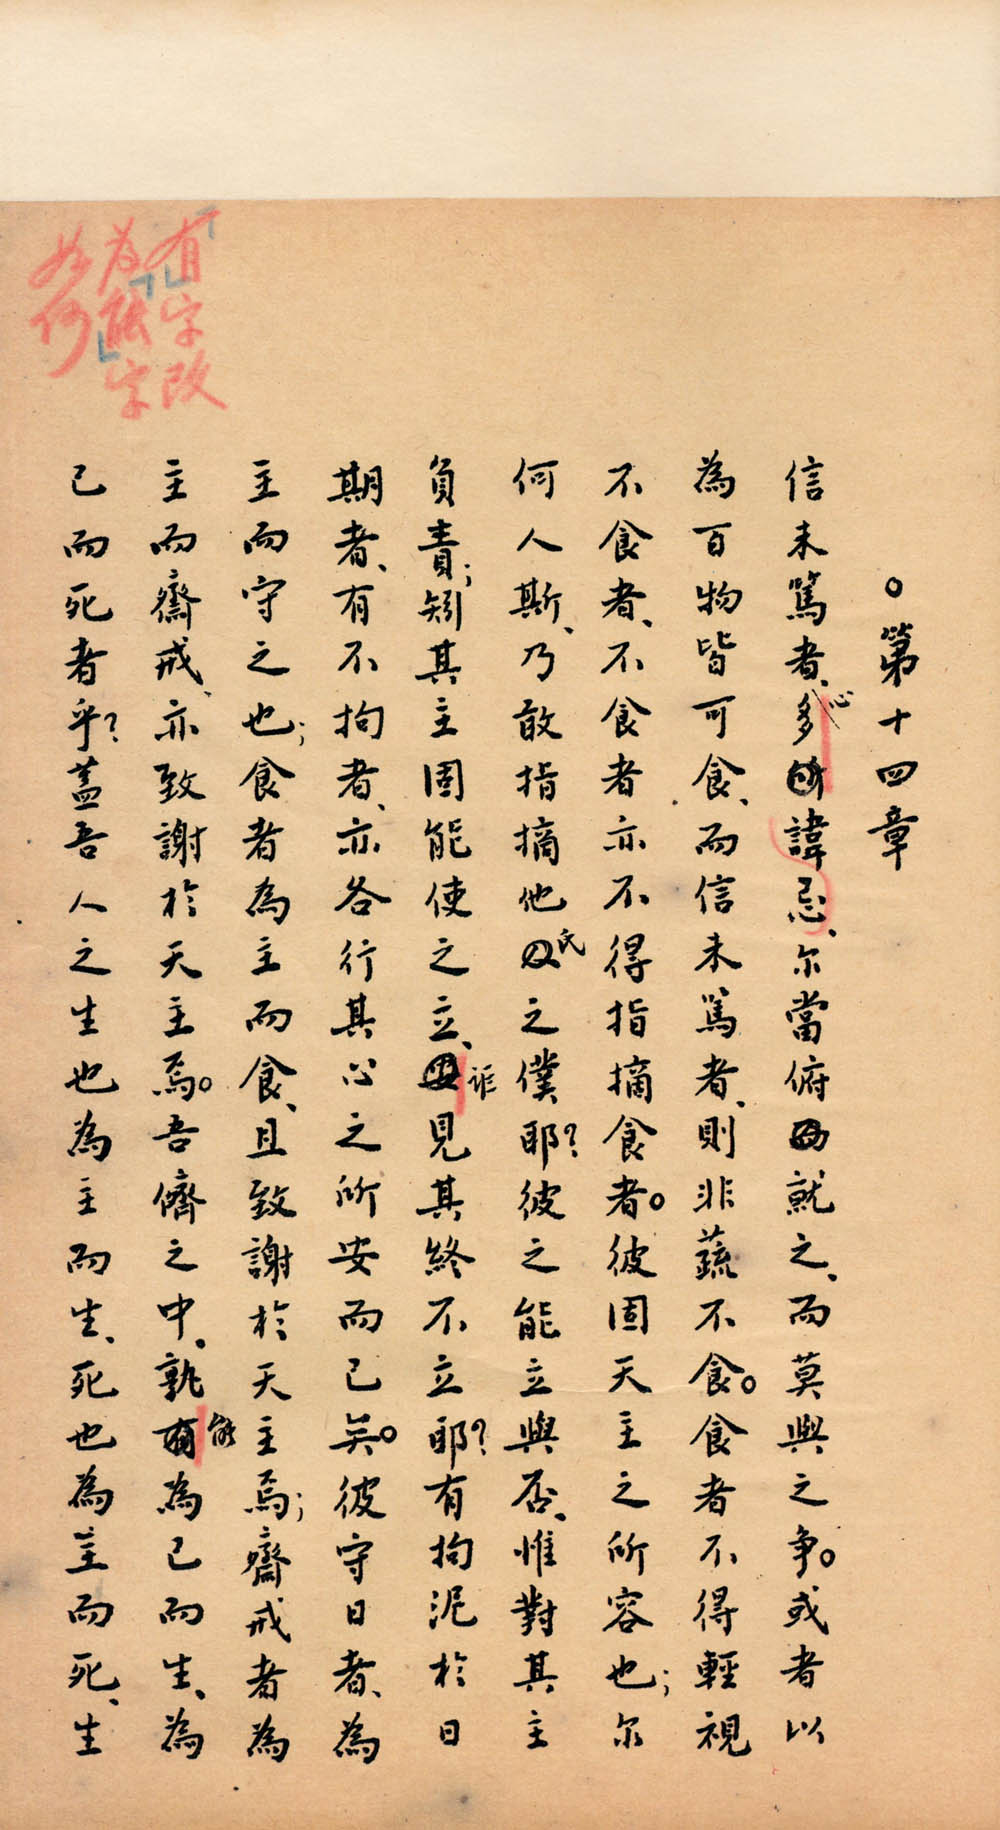 「有」字改
為「能」字
如何
○第十四章
信未篤者、多心諱忌、尔當俯就之、而莫與之爭。或者以
為百物皆可食、而信未篤者、則非蔬不食。食者不得輕視
不食者、不食者亦不得指摘食者。彼固天主之所容也；尔
何人斯、乃敢指摘他氏之僕耶？彼之能立與否、惟對其主
負責；矧其主固能使之立、詎見其終不立耶？有拘泥於日
期者、有不拘者、亦各行其心之所安而已矣。彼守日者、為
主而守之也；食者為主而食、且致謝於天主焉；齋戒者為
主而齋戒、亦致謝於天主焉。吾儕之中、孰能為己而生、為
己而死者乎？蓋吾人之生也為主而生、死也為主而死、生